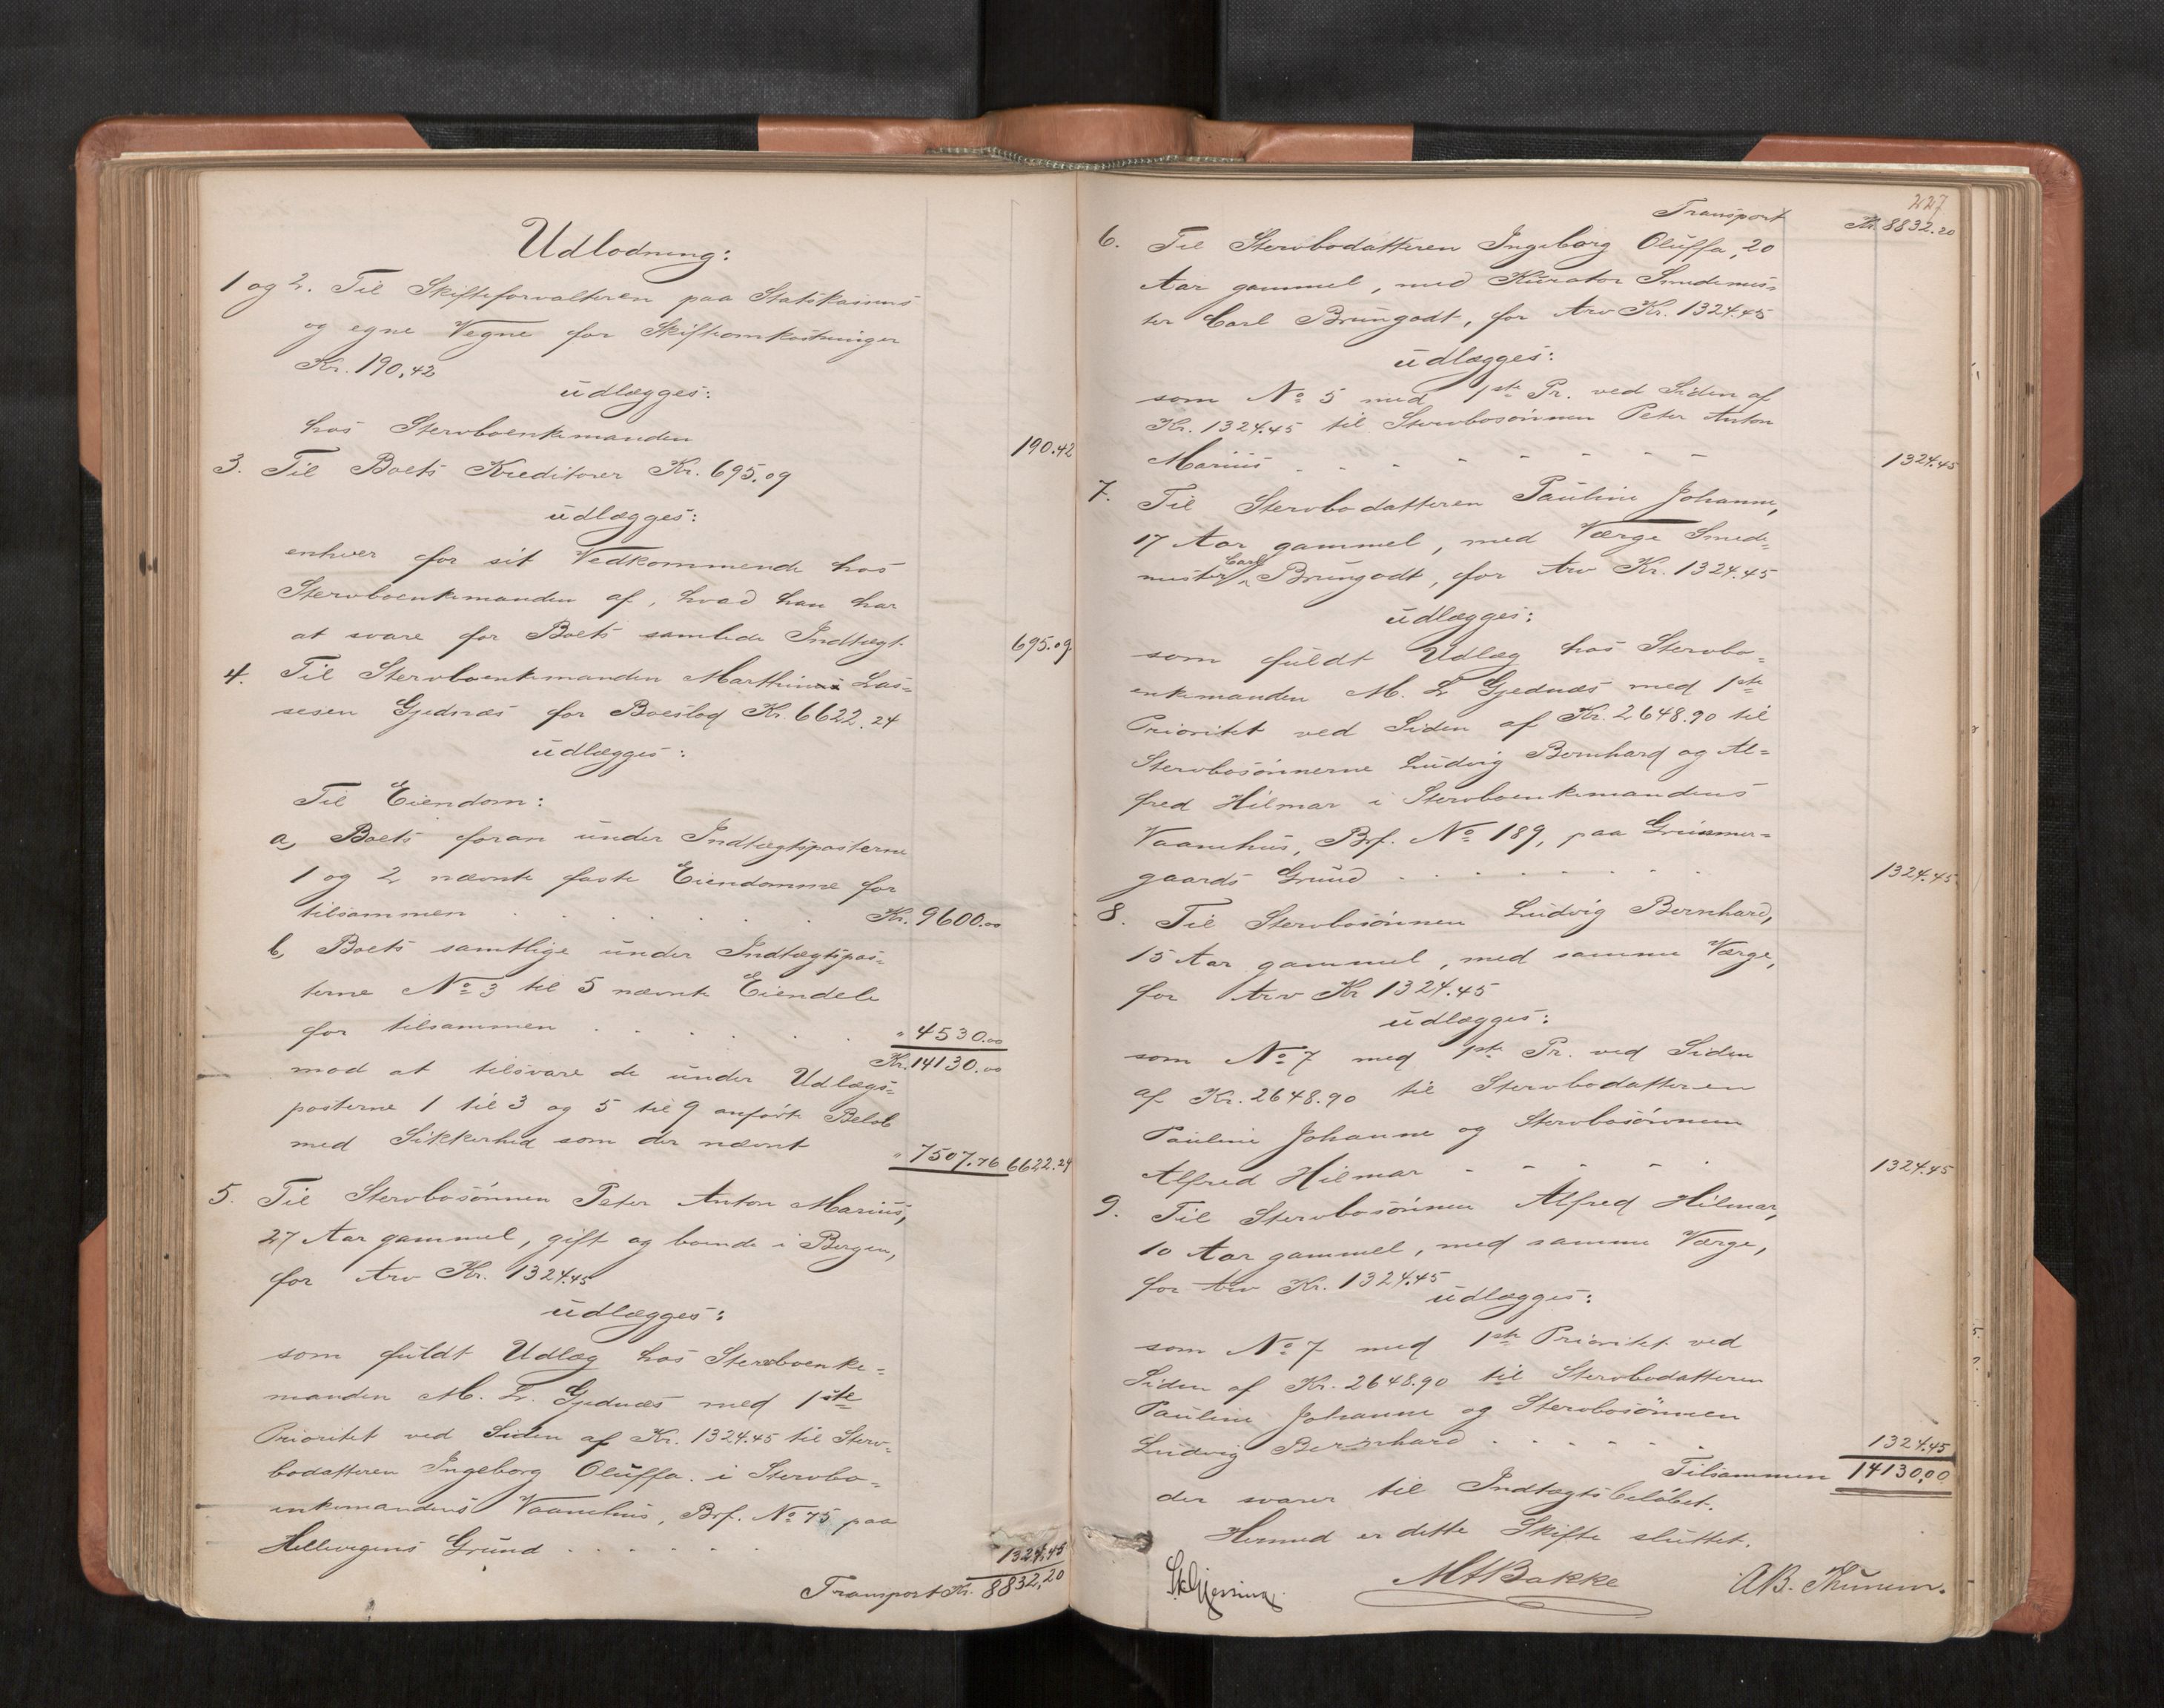 Udlodning:
1 og 2. Til Skifteforvalteren paa Statskassens
og egne Vegne for Skifteomkostninger
Kr. 190,42
udlægges:
hos Stervboenkemanden 190.42
3. Til Boets Kreditorer Kr. 695.09
udlægges:
enhver for sit Vedkommende hos
Stervboenkemanden af, hvad han har
at svare for Boets samlede Indtægt. 695.09.
4. Til Stervboenkemanden Marthin Las-
sesen Gjednæs for Boeslod Kr. 6622.24
udlægges:
Til Eiendom:
a, Boets foran under Indtægtsposterne
1 og 2 nævnte faste Eiendomme for
tilsammen . . . . . Kr. 9600.00
b, Boets samtlige under Indtægtspos-
terne No 3 til 5 nævnte Eiendele
for tilsammen . . . . . " 4530.00
Kr. 14130.00
mod at tilsvare de under Udlægs-
posterne 1 til 3 og 5 til 9 anførte Beløb
med Sikkerhed som der nævnt " 7507.76 6622.24
5. Til Stervbosönnen Peter Anton Marius,
27 Aar gammel, gift og boende i Bergen,
for Arv Kr. 1324.45
udlægges:
som fuldt Udlæg hos Stervboenke-
manden M. L. Gjednæs med 1ste
Prioritet ved Siden af Kr. 1324.45 til Sterv-
bodatteren Ingeborg Oluffa i Stervbo-
enkemandens Vaanehus, Brf. No 75 paa
Hellevigens Grund . . . . . . 1324.45
Transport Kr. 8832,20
227
Transport Kr. 8832.20
6. Til Stervbodatteren Ingeborg Oluffa, 20
Aar gammel, med Kurator Smedemes-
ter Carl Brungodt, for Arv Kr. 1324.45
udlægges:
som No 5 med 1ste Pr. ved Siden af
Kr. 1324.45 til Stervbosönnen Peter Anton
Marius - - - - - - - 1324.45
7. Til Stervbodatteren Pauline Johanne,
17 Aar gammel, med Værge Smede-
mester Carl Brungodt, for Arv Kr. 1324.45
udlægges:
som fuldt Udlæg hos Stervbo-
enkemanden M. L Gjednæs med 1ste
Prioritet ved Siden af Kr. 2648.90 til
Stervbosönnerne Ludvig Bernhard og Al-
fred Hilmar i Stervboenkemandens
Vaanehus, Brf. No 189, paa Grimmer-
gaards Grund . . . . . . . 1324.45.
8. Til Stervbosönnen Ludvig Bernhard,
15 Aar gammel, med samme Værge,
for Arv Kr 1324.45
udlægges:
som No 7 med 1ste Pr. ved Siden
af Kr. 2648.90 til Stervbodatteren
Pauline Johanne og Stervbosönnen
Alfred Hilmar - - - - . 1324.45
9. Til Stervbosönnen Alfred Hilmar,
10 Aar gammel, med samme Værge,
for Arv Kr. 1324.45
udlægges:
som No 7 med 1ste Prioritet ved
Siden af Kr. 2648.90 til Stervbodatteren
Pauline Johanne og Stervbosönnen
Ludvig Bernhard . . . . . . 1324.45
Tilsammen 14130,00
der svarer til Indtægtsbelöbet.
Hermed er dette Skifte sluttet.
MABakke